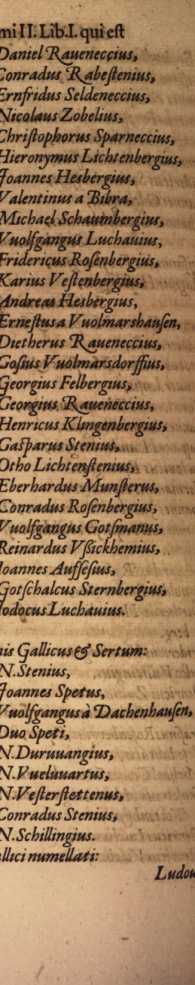 mi II. Lib. I. qui est
Daniel Raueneccius,
Conradus Rabestenius,
Ernfridus Seldeneccius,
Nicolaus Zobelius,
Christophorus Sparneccius,
Hieronymus Lichtenbergius,
Joannes Hesbergius,
Valentinus a Bibra,
Michael Schaumbergius,
Vuolfgangus Luchauius,
Fridericus Rosenbergius,
Karius Vestenbergius,
Andreas Hesbergius,
Ernestus a Vuolmarshausen,
Dietherus Raueneccius,
Gosius Vuolmarsdorffius,
Georgius Felbergius,
Georgius Raueneccius,
Henricus Klingenbergius,
Gasparus Stenius,
Otho Lichtenstenius,
Eberhardus Munsterus,
Conradus Rosenbergius,
Vuolfgangus Gotsmanus,
Reinardus Vsickhemius,
Ioannes Auffesius,
Gotschalcus Sternbergius,
Iodocus Luchauius.
nis Gallicus & Sertum:
N. Stenius,
Joannes Spetus,
Vuolfgangus à Dachenhausen,
Duo Speti,
N. Duruuangius,
N. Vueluuartus,
N. Vesterstettenus,
Conradus Stenius,
N. Schillingius.
llici numellati:
Ludou